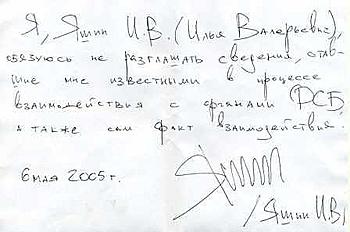 Я, Яшин И.В. (Илья Валерьевич),
обязуюсь не разглашать сведения, став-
шие мне известными в процессе
взаимодействия с органами ФСБ,
а также сам факт взаимодействия.
6 мая 2005 г.
Яшин
/Яшин И.В./